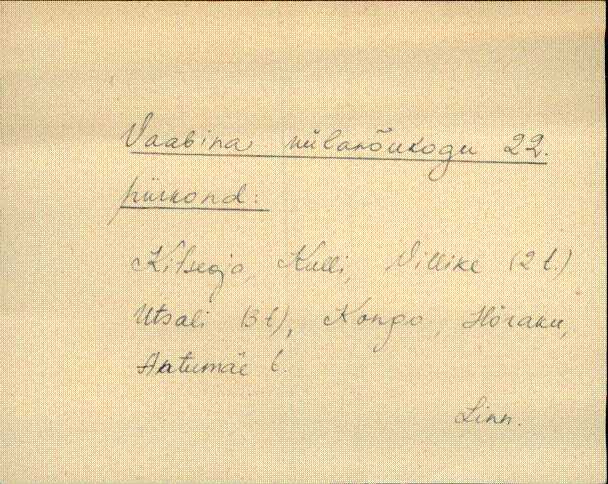 Vaabina külanõukogu 22.
piirkond:
Kitseoja, Kulli, Villike (2 t.)
Utsali (3 t), Kongo, Hõraku,
Antumäe t.
Linn.